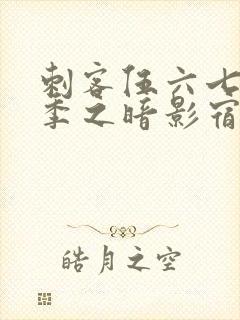 刺客伍六七
季之暗影宿
皓月之空